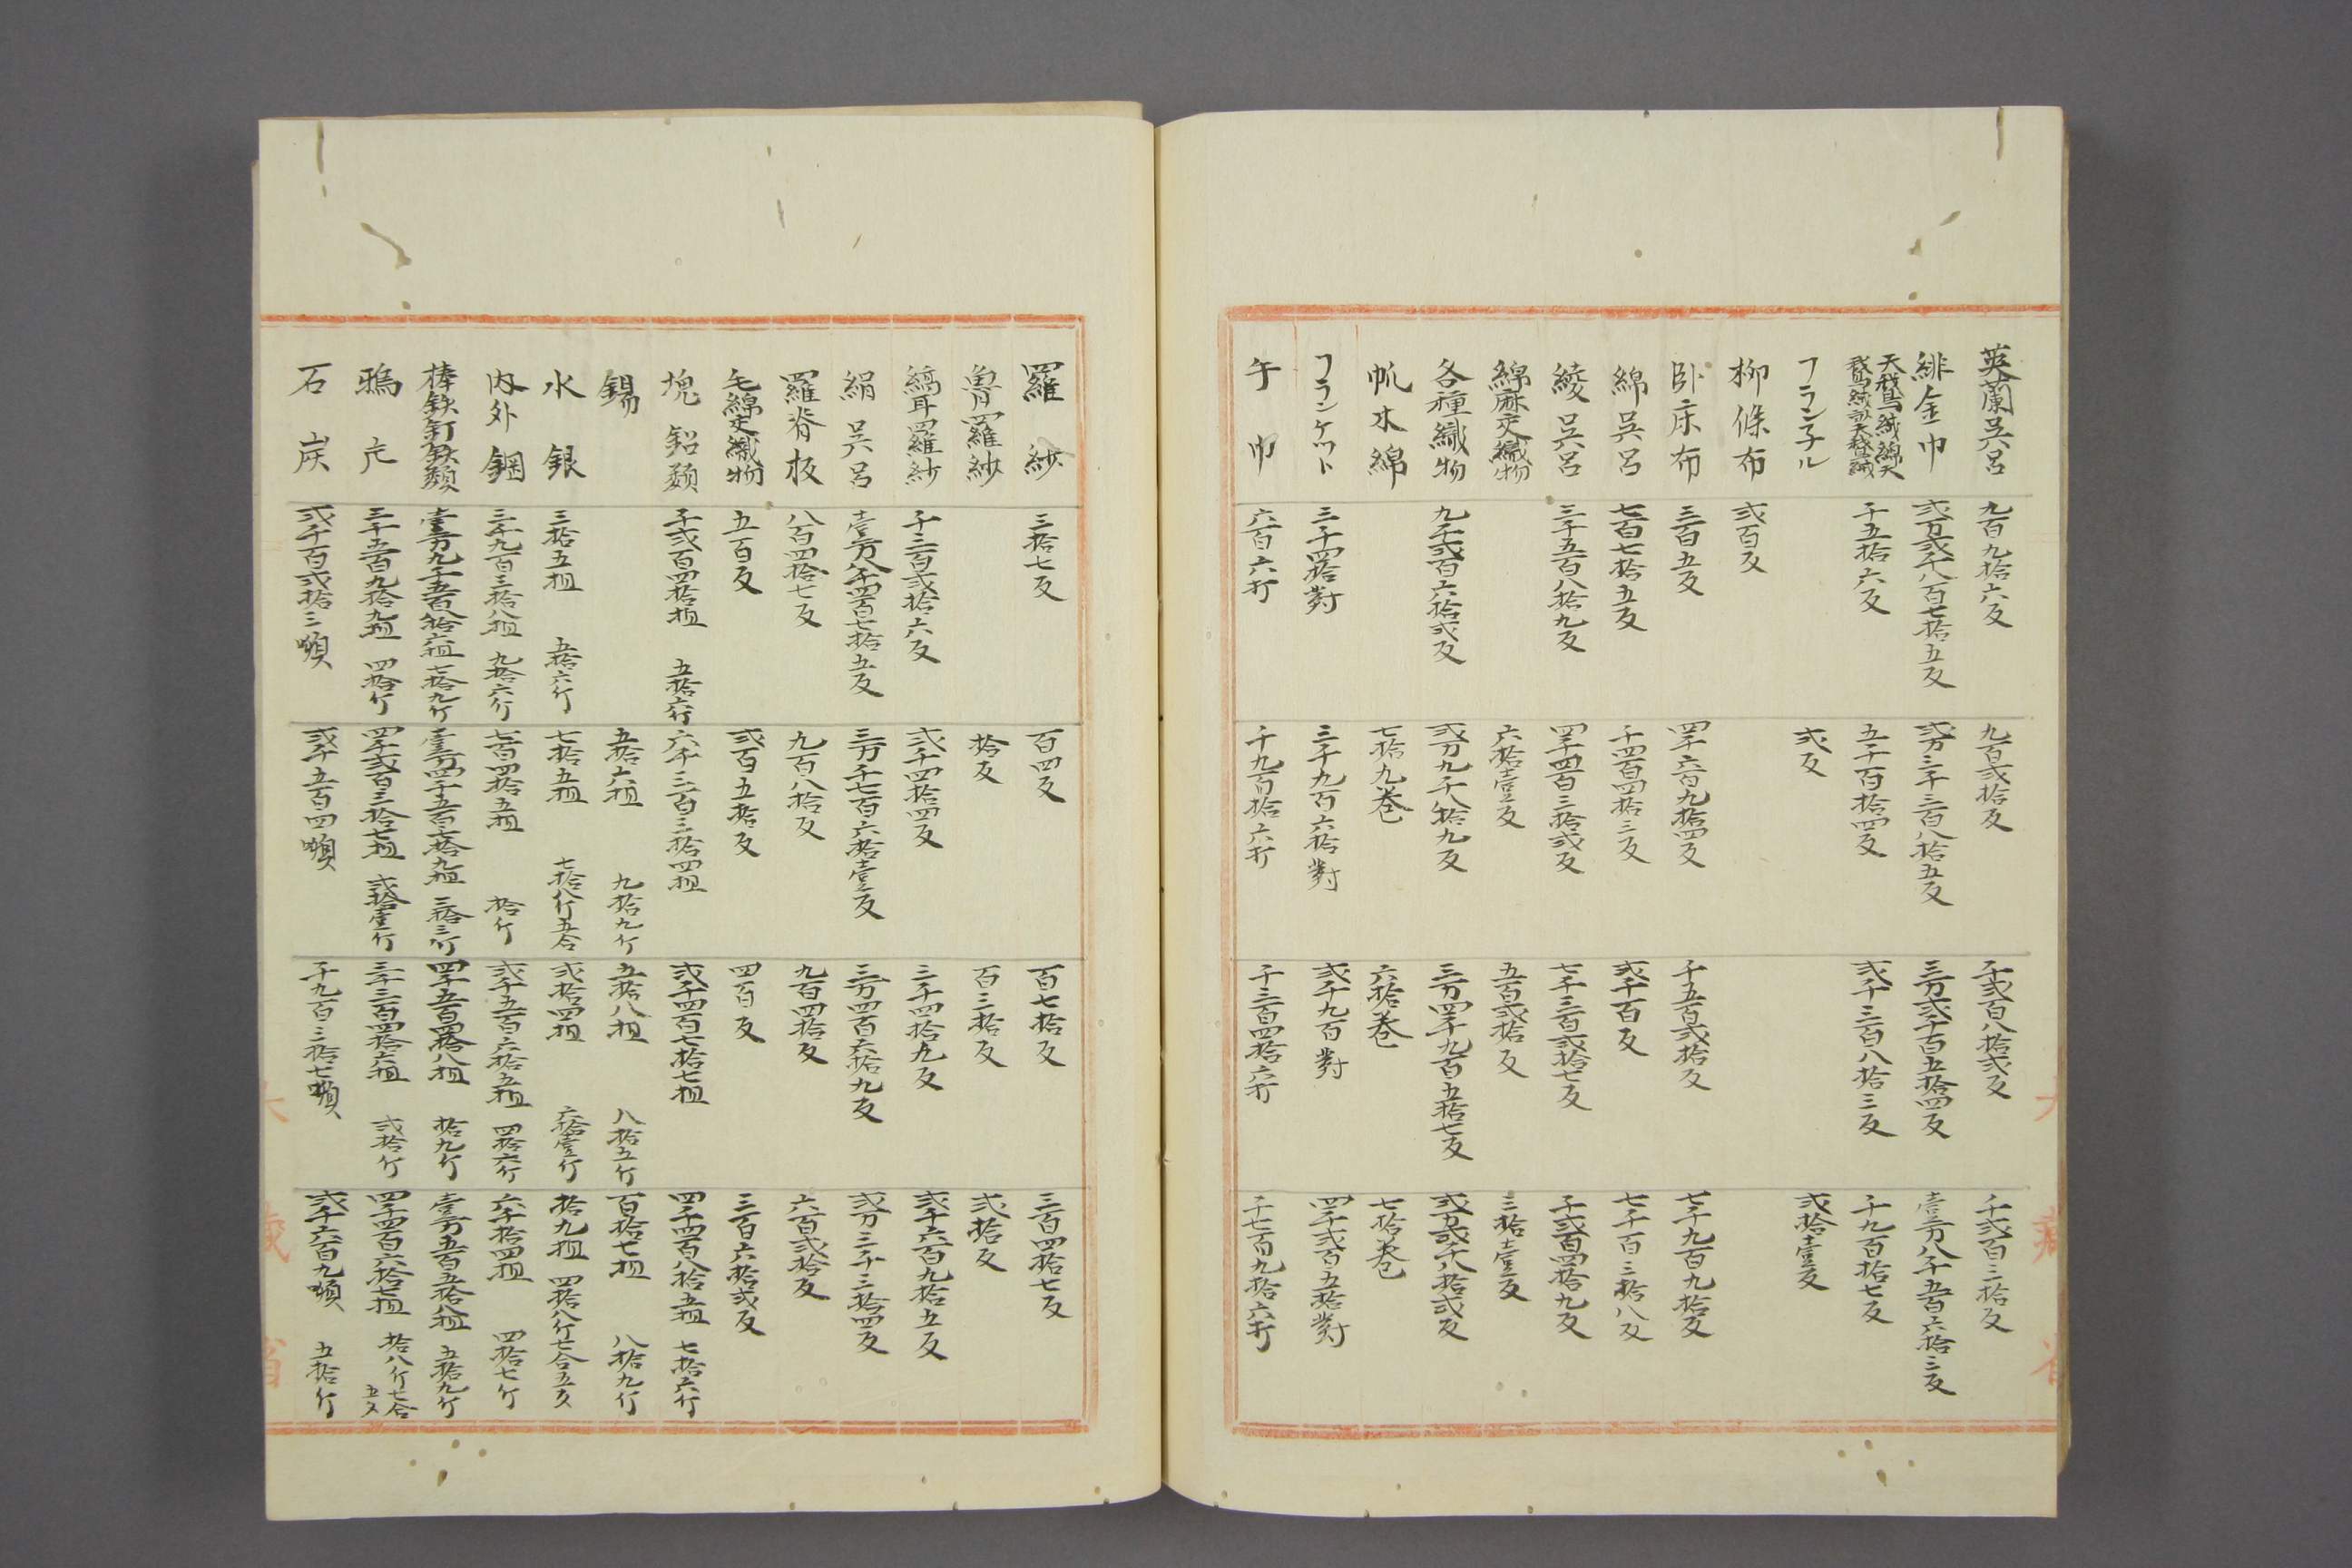 英蘭呉呂 九百九拾六反 九百弐拾反 千弐百八拾弐反 千弐百三拾反
緋金巾 弐万弐千八百七拾五反 弐万三千三百八拾五反 三万弐千百五拾四反 壹万八千五百六拾三反
天鵞絨綿天鵞絨 千五拾六反 五千百拾四反 弐千三百八拾三反 千九百拾七反
フランネル 弐反 弐拾壹反
柳條布 弐百反
臥床布 三百五反 四千六百九拾四反 千五百弐拾反 七千九百九拾反
綿呉呂 七百七拾五反 千四百四拾三反 弐千百反 七千百三拾八反
綾呉呂 三千五百八拾九反 四千四百三拾弐反 七千三百弐拾七反 千弐百四拾九反
綿麻交織物 六拾壹反 五百弐拾反 三拾壹反
各種織物 九千弐百六拾弐反 弐万九千八拾九反 三万四千九百五拾七反 弐万弐千八拾弐反
帆木綿 七拾九巻 六拾巻 七拾巻
フランケット 三千四拾對 三千九百六拾對 弐千九百對 四千弐百五拾對
手巾 六百六打 千九百拾六打 千三百四拾六打 千七百九拾六打
羅紗 三拾七反 百四反 百七拾反 三百四拾七反
魯羅紗 拾反 百三拾反 弐拾反
縞耳羅紗 千三百弐拾六反 弐千四拾四反 三千四拾九反 弐千六百九拾五反
絹呉呂 壹万八千四百七拾五反 三万千七百六拾壹反 三万四百六拾九反 弐万三千三拾四反
羅脊板 八百四拾七反 九百八拾反 九百四拾反 六百弐拾反
毛綿交織物 五百反 弐百五拾反 四百反 三百六拾弐反
塊鉛類 千弐百四拾担 五拾六斤 六千三百三拾四担 弐千四百七拾七担 四千四百八拾五担 七拾六斤
錫 五拾六担 九拾九斤 五拾八担 八拾五斤 百拾七担 八拾九斤
水銀 三拾五担 五拾六斤 七拾五担 七拾八斤五合 弐拾四担 六拾壹斤 拾九担 四拾八斤七合五夕
内外鋼 三千九百三拾八担 九拾六斤 七百四拾五担 拾斤 弐千五百六拾五担 四拾六斤 六千拾四担 四拾七斤
棒鉄釘鉄類 壹万九千五百八拾六担 七拾九斤 壹万四千五百六拾九担 三拾三斤 四千五百四拾八担 拾九斤 壹万五百五拾八担 五拾九斤
鴉片 三千五百九拾九担 四拾斤 四千弐百三拾七担 弐拾壹斤 三千三百四拾六担 弐拾斤 四千四百六拾七担 拾八斤七合五夕
石炭 弐千百弐拾三噸 弐千五百四噸 千九百三拾七噸 弐千六百九噸 五拾斤
大藏省